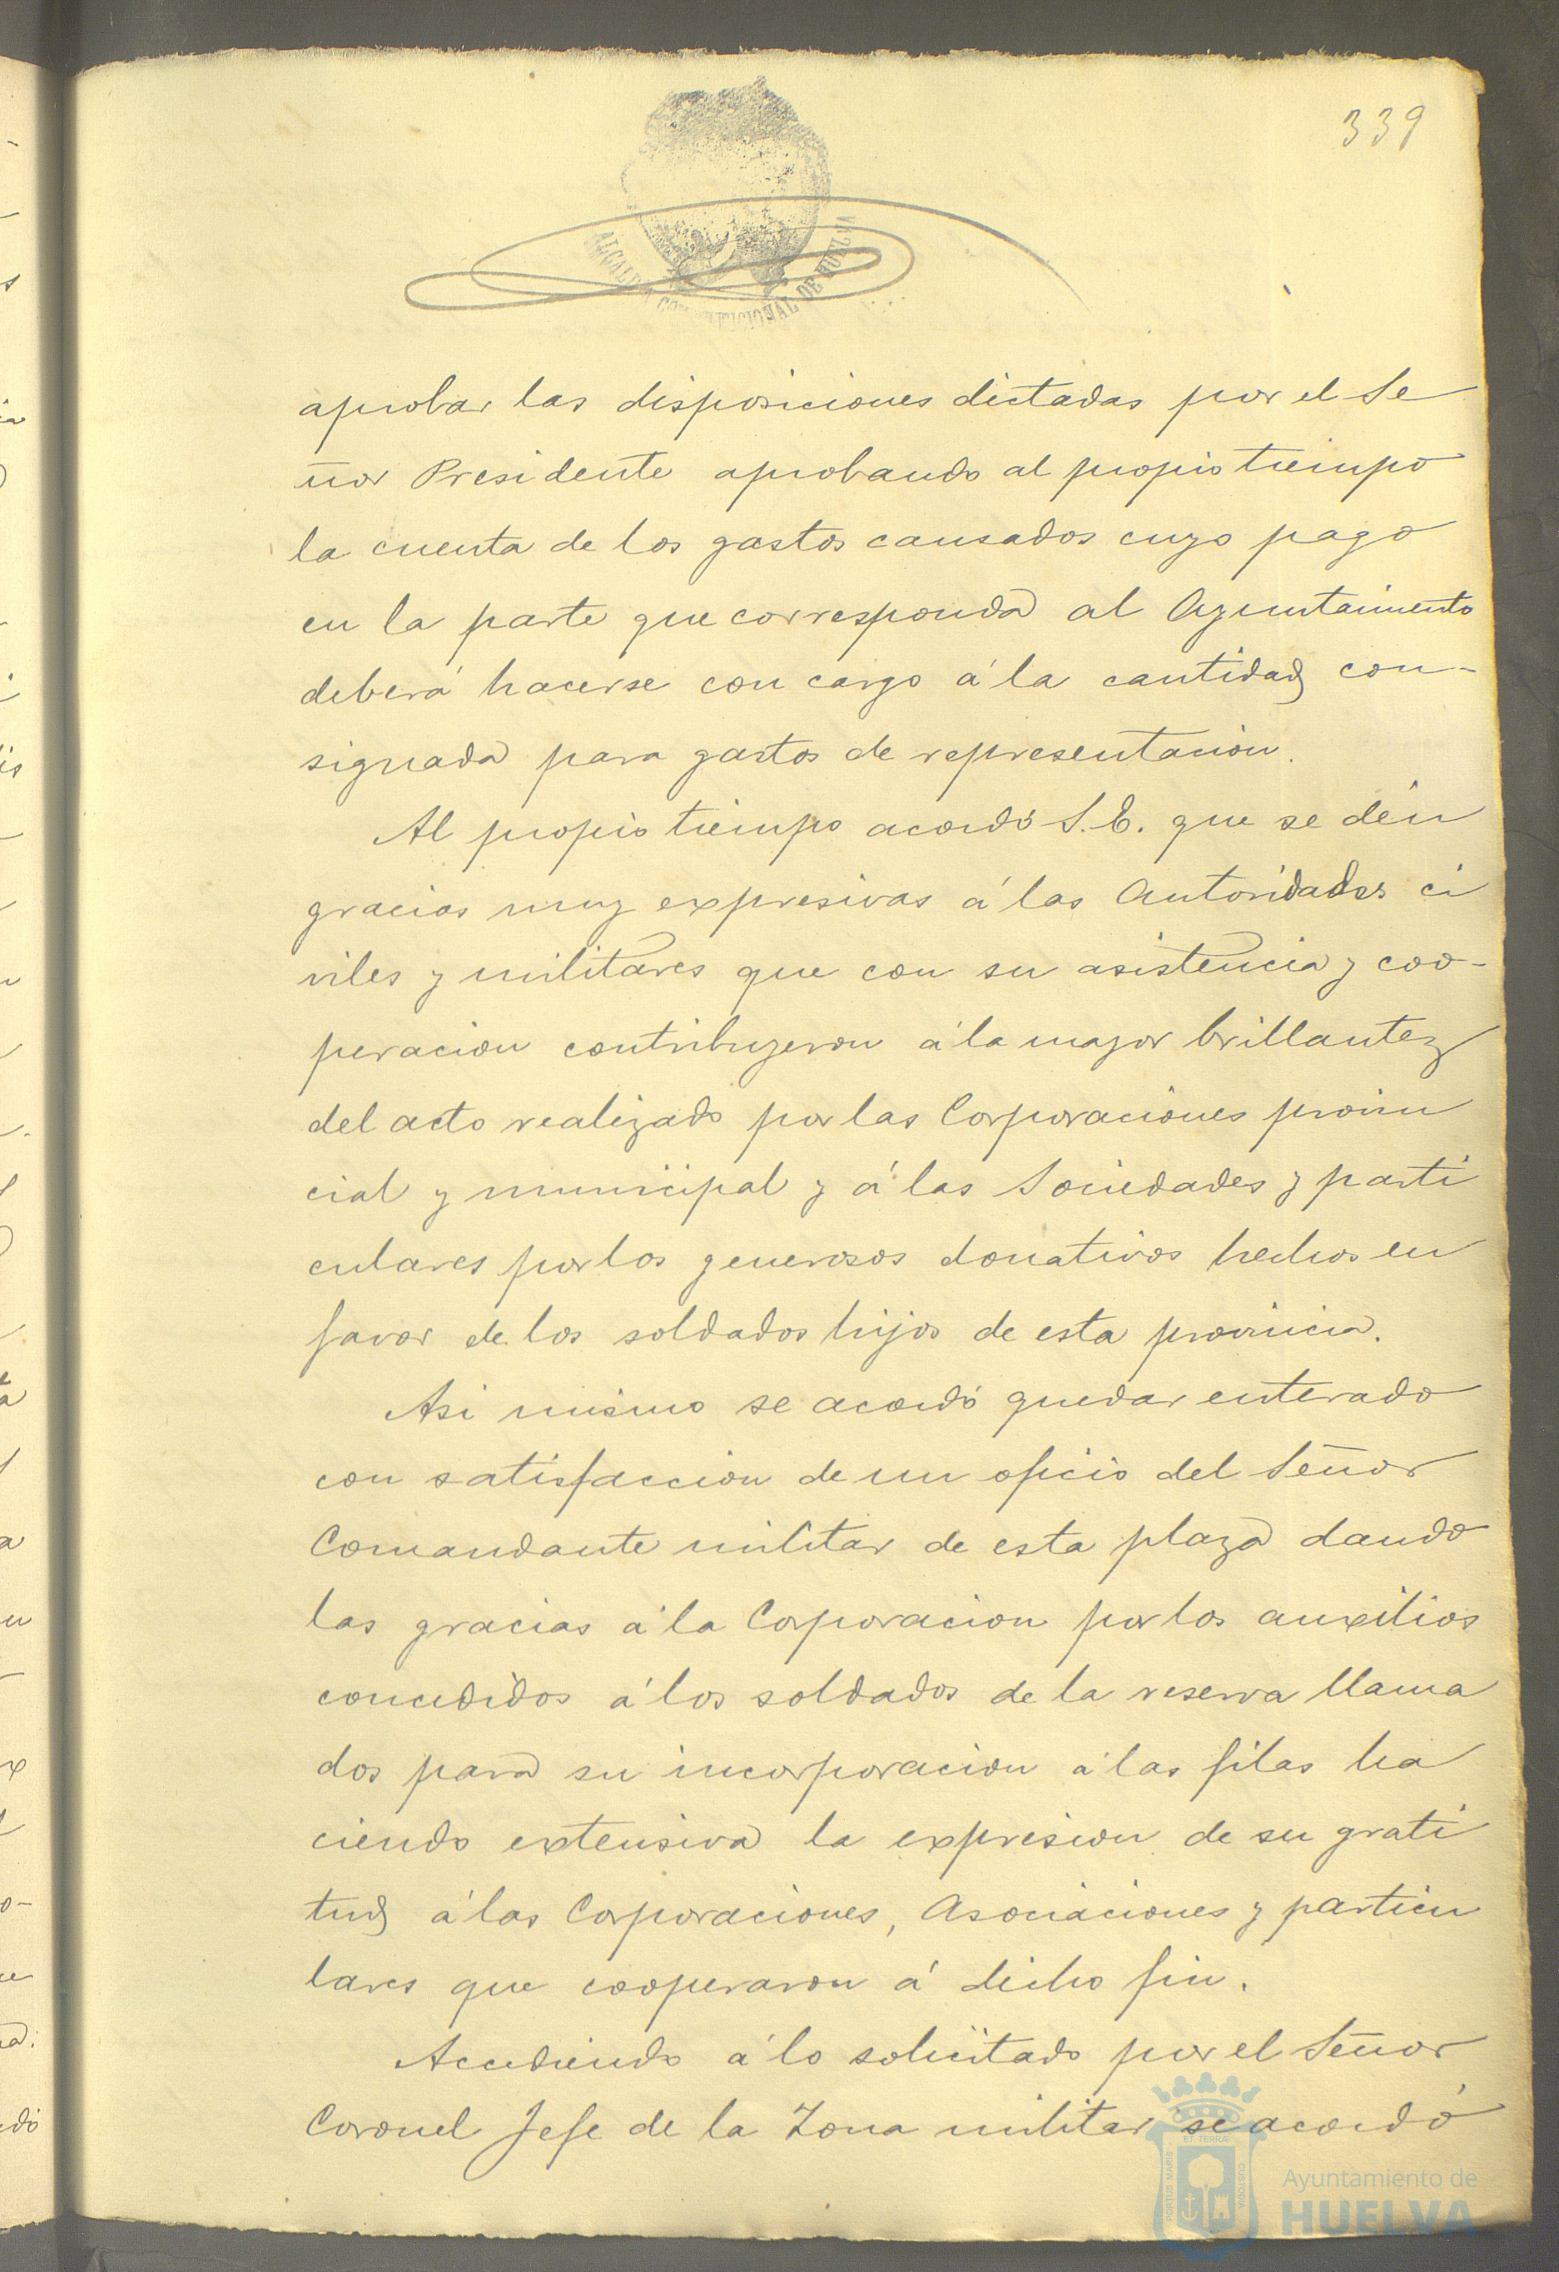 339
ALCALDIA CONSTITUCIONAL DE HUELVA
aprobar las disposiciones dictadas por el Se
ñor Presidente aprobando al propio tiempo
la cuenta de los gastos causados cuyo pago
en la parte que corresponda al Ayuntamiento
deberá hacerse con cargo á la cantidad con-
signada para gastos de representacion.
Al propio tiempo acordó S.E. que se dén
gracias muy expresivas á las Autoridades ci
viles y militares que con su asistencia y coo-
peracion contribuyeron á la mayor brillantez
del acto realizado por las Corporaciones provin
cial y municipal y á las Sociedades y parti
culares por los generosos donativos hechos en
favor de los soldados hijos de esta provincia.
Asi mismo se acordó quedar enterado
con satisfaccion de un oficio del Señor
Comandante militar de esta plaza dando
las gracias á la Corporacion por los auxilios
concedidos á los soldados de la reserva llama
dos para su incorporacion á las filas ha
ciendo extensiva la expresion de su grati
tud á las Corporaciones, Asociaciones y particu
lares que cooperaron á dicho fin.
Accediendo á lo solicitado por el Señor
Coronel Jefe de la Zona militar se acordó
PORTUS MARIS
ET TERRA
CUSTODIA
Ayuntamiento de
HUELVA